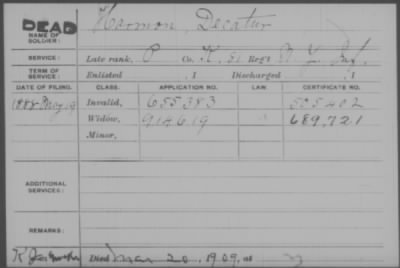 DEAD
NAME OF SOLDIER: Harmon, Decatur
SERVICE: Late rank, P Co. K, 81 Reg't N. Y. Inf.
TERM OF SERVICE: Enlisted , 1 Discharged , 1
DATE OF FILING. CLASS. APPLICATION NO. LAW. CERTIFICATE NO.
1888 May 19 Invalid, 655383 505402
Widow, 914619 689,721
Minor,
ADDITIONAL SERVICES:
REMARKS:
Died Mar 20, 1909, at